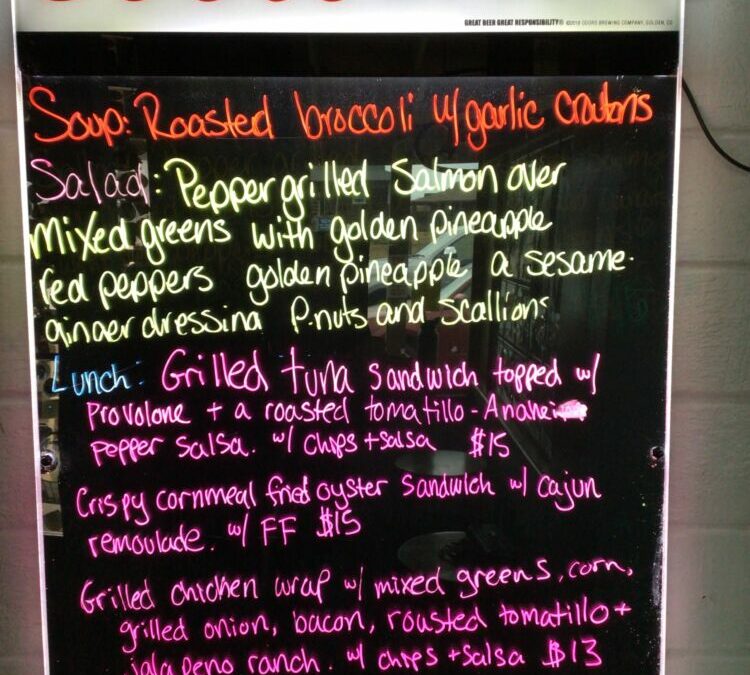 GREAT BEER GREAT RESPONSIBILITY® ©2018 COORS BREWING COMPANY, GOLDEN, CO
Soup: Roasted broccoli w/ garlic croutons
Salad: Pepper grilled Salmon over
mixed greens with golden pineapple
red peppers golden pineapple a sesame-
ginger dressing P.nuts and scallions
Lunch: Grilled tuna sandwich topped w/
Provolone + a roasted tomatillo-Anaheim
pepper salsa. w/ chips + salsa $15
Crispy cornmeal fried oyster sandwich w/ cajun
remoulade. w/ FF $15
Grilled chicken wrap w/ mixed greens, corn,
grilled onion, bacon, roasted tomatillo +
jalapeno ranch. w/ chips + salsa $13